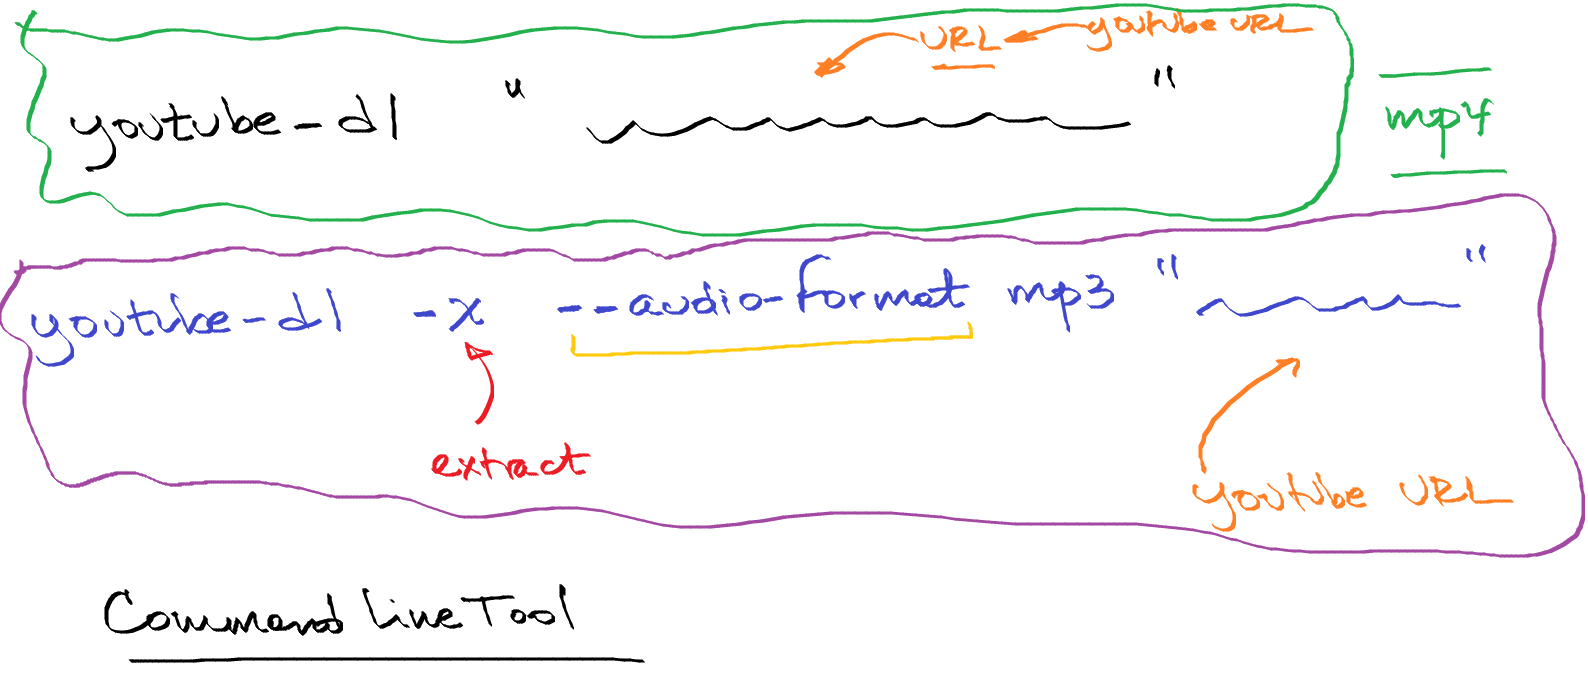 URL youtube URL
youtube-dl " "
mp4
youtube-dl -x --audio-format mp3 " "
extract
youtube URL
Command Line Tool